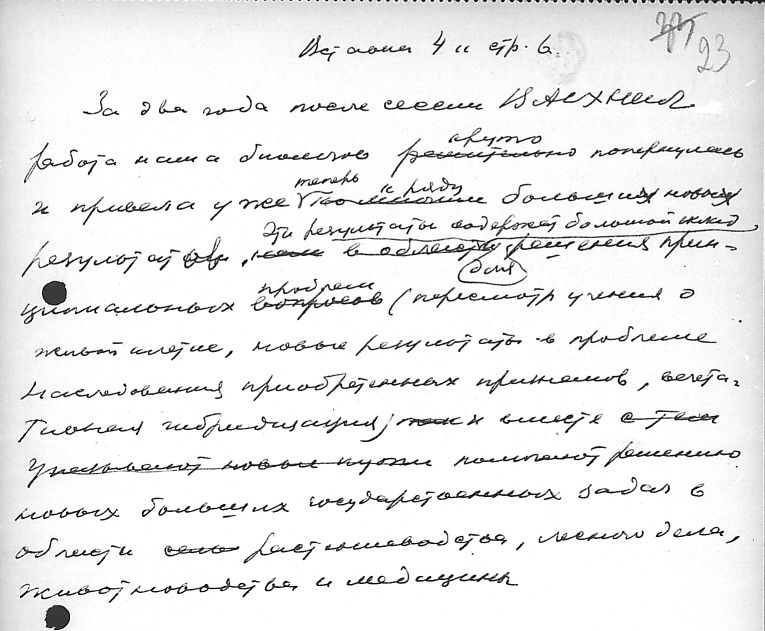 23
Вставка 4 к стр. 6
За два года после сессии ВАСХНИЛ
круто
работа наша биологов решительно повернулась
теперь к ряду
и привела уже больших новых
Эти результаты содержат большой вклад
результатов, в области решения прин-
для
проблем
ципиальных вопросов (пересмотр учения о
живой клетке, новые результаты в проблеме
наследования приобретенных признаков, вегета-
тивная гибридизация) и вместе с тем
указывают новые пути помогают решению
новых больших государственных задач в
области растениеводства, лесного дела,
животноводства и медицины